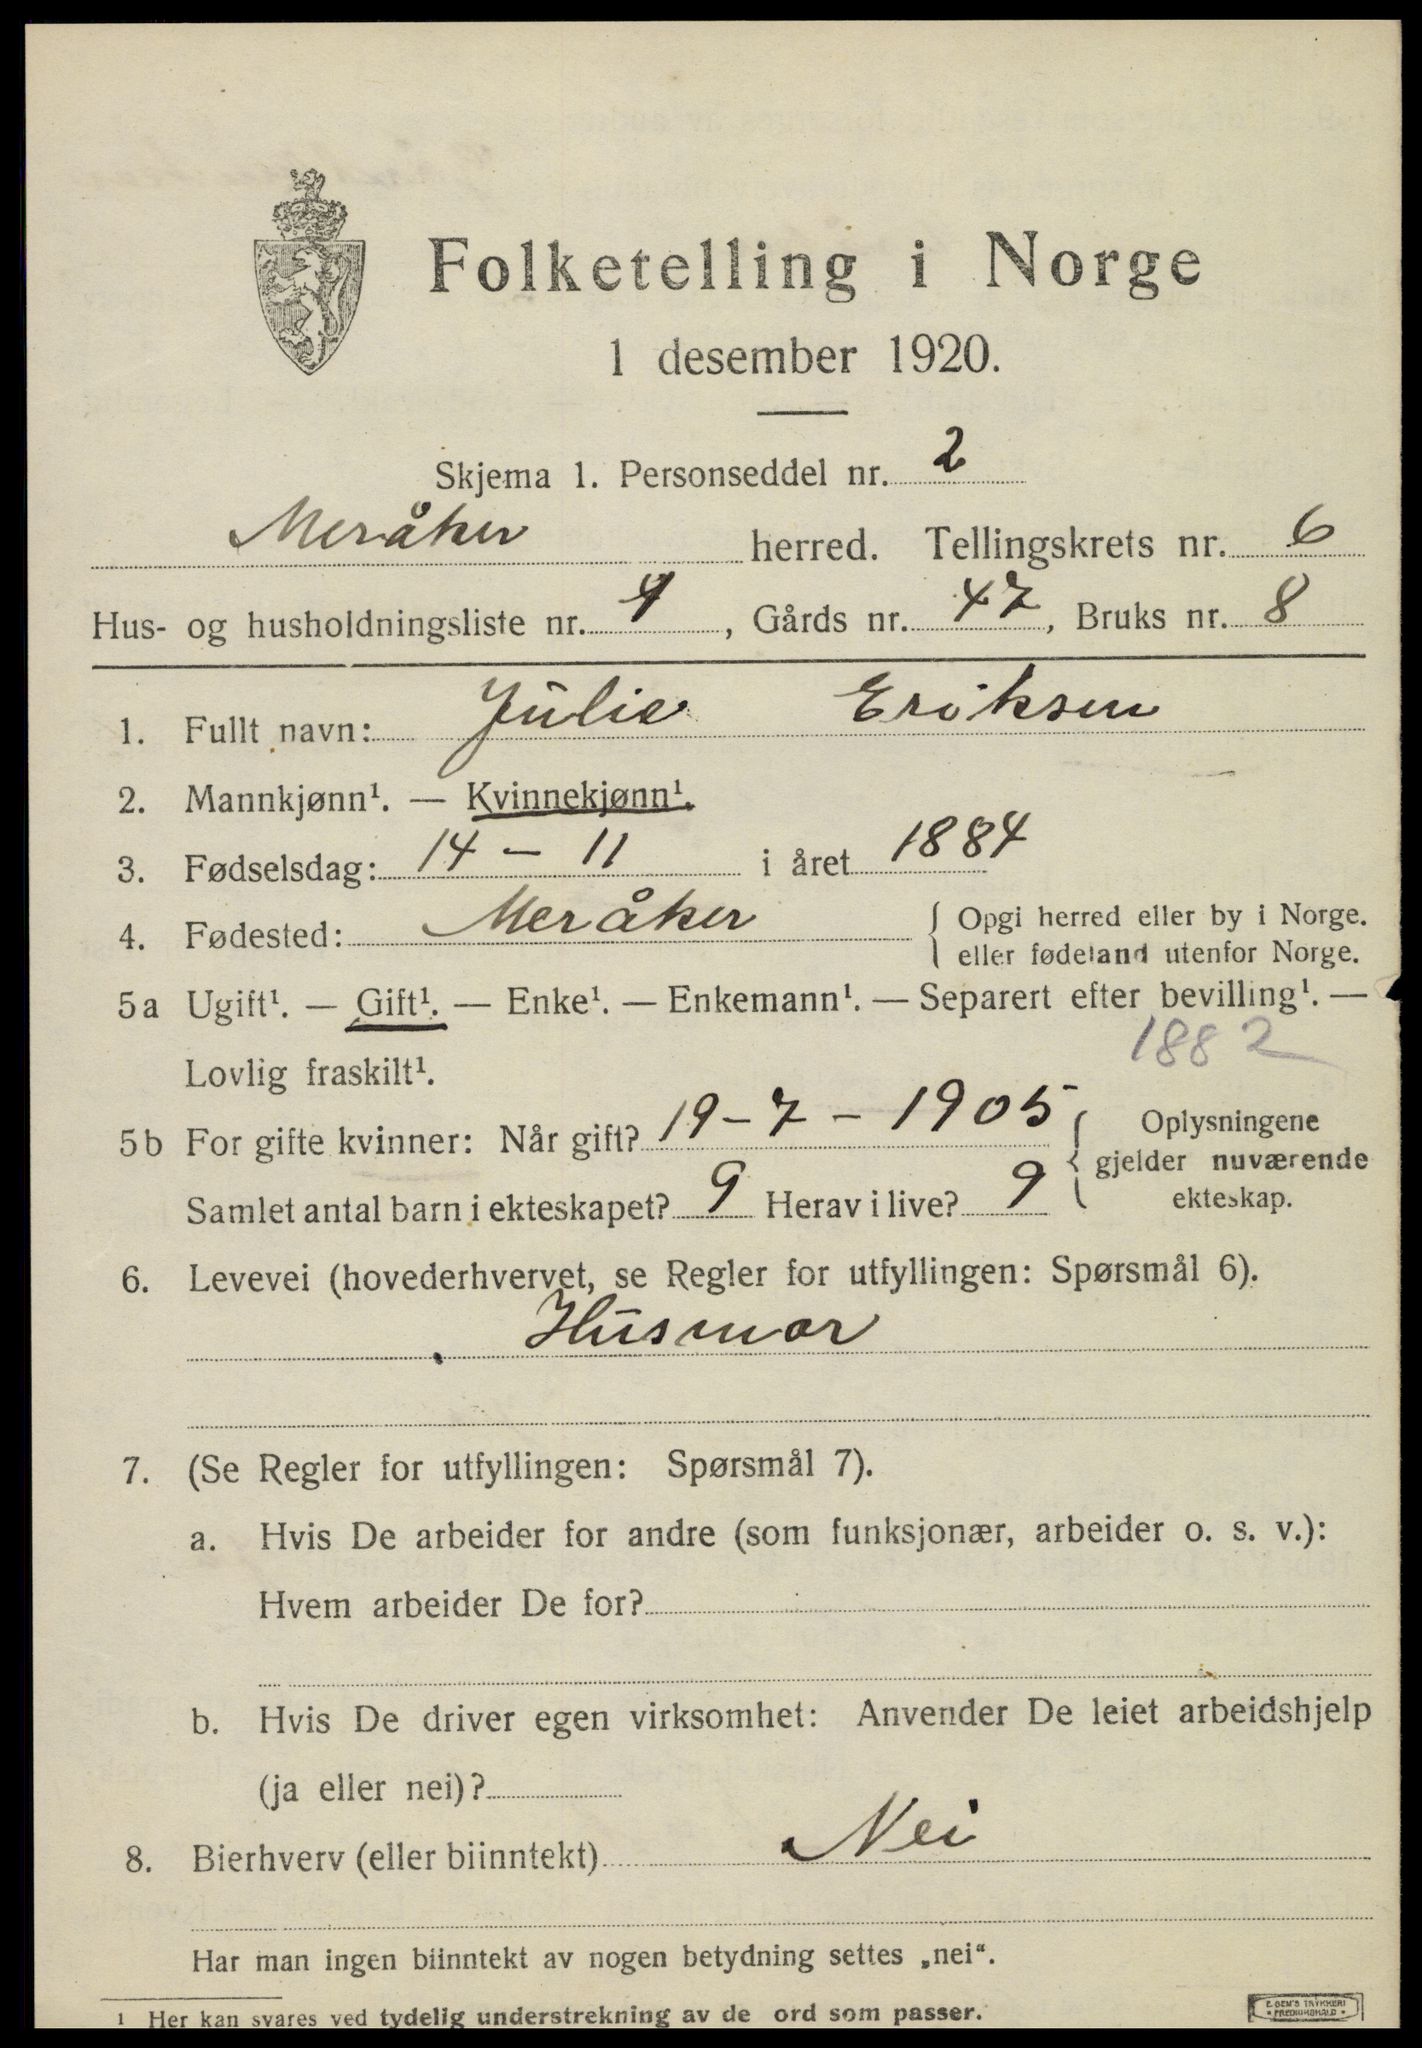 Folketelling i Norge
1 desember 1920.
Skjema 1. Personseddel nr. 2
Meråker herred. Tellingskrets nr. 6
Hus- og husholdningsliste nr. 4, Gårds nr. 47, Bruks nr. 8
1. Fullt navn: Julie Eriksen
2. Mannkjønn¹. — Kvinnekjønn¹.
3. Fødselsdag: 14 - 11 i året 1884
4. Fødested: Meråker { Opgi herred eller by i Norge.
eller fødeland utenfor Norge.
5a Ugift¹. — Gift¹. — Enke¹. — Enkemann¹. — Separert efter bevilling¹. —
Lovlig fraskilt¹. 1882
5b For gifte kvinner: Når gift? 19 - 7 - 1905 { Oplysningene
gjelder nuværende
Samlet antal barn i ekteskapet? 9 Herav i live? 9 ekteskap.
6. Levevei (hovederhvervet, se Regler for utfyllingen: Spørsmål 6).
Husmor
7. (Se Regler for utfyllingen: Spørsmål 7).
a. Hvis De arbeider for andre (som funksjonær, arbeider o. s. v.):
Hvem arbeider De for?
b. Hvis De driver egen virksomhet: Anvender De leiet arbeidshjelp
(ja eller nei)?
8. Bierhverv (eller biinntekt) Nei
Har man ingen biinntekt av nogen betydning settes „nei“.
1 Her kan svares ved tydelig understrekning av de ord som passer.
E. SEM'S TRYKKERI
FREDRIKSHALD